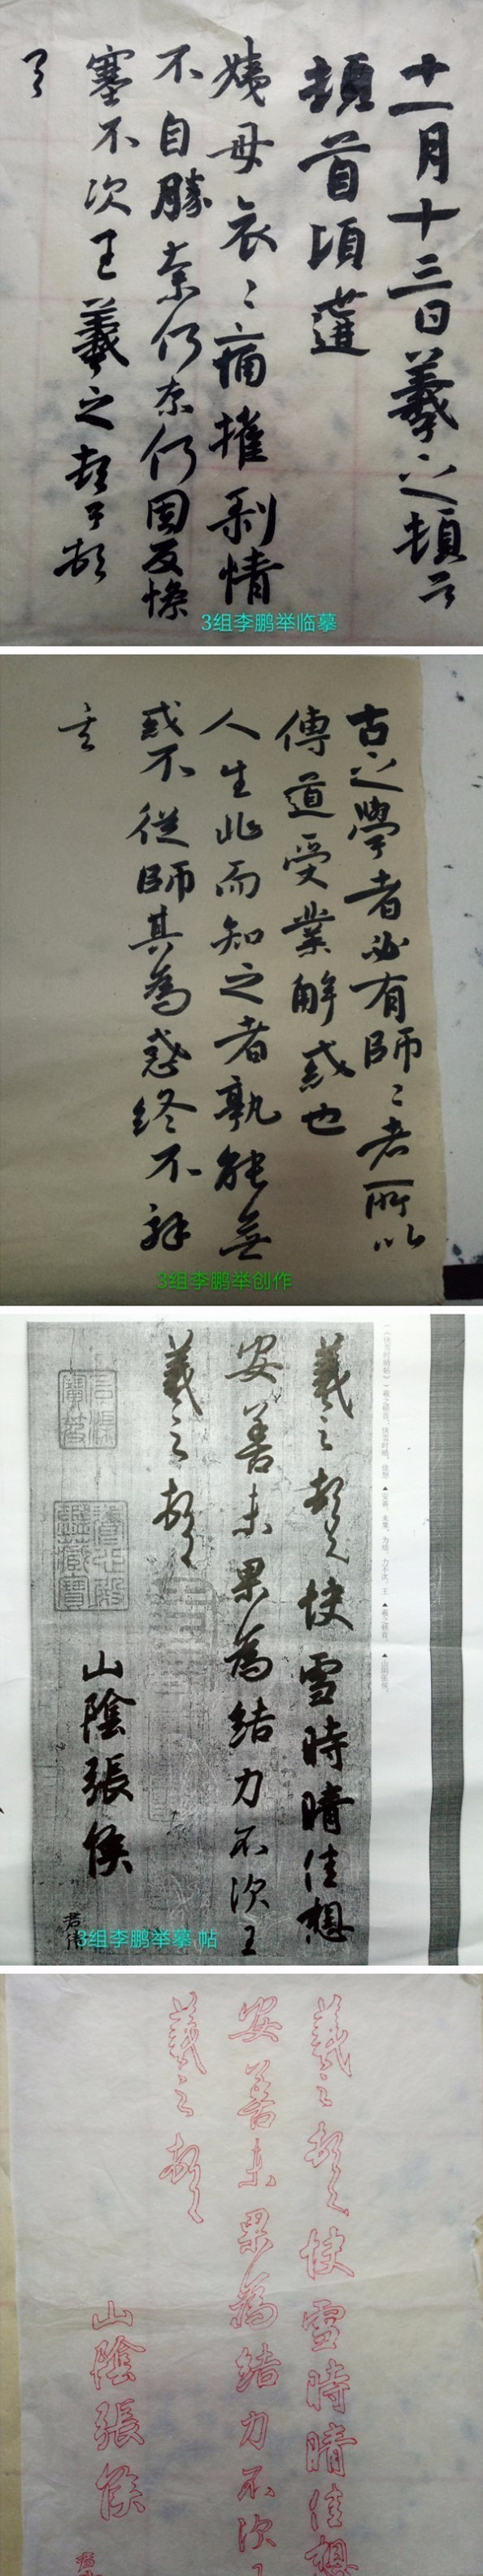 十一月十三日羲之頓首
頓首頃遘
姨母哀〻痛摧剥情
不自勝奈何奈何因反慘
塞不次王羲之頓首頓
首
3组李鹏举临摹
古之學者必有師〻者所以
傳道受業解惑也
人生非而知之者孰能無
惑不從師其為惑終不解
矣
3组李鹏举创作
羲之頓首快雪時晴佳想
安善未果為結力不次王
羲之頓首
山陰張侯
君倩
3组李鹏举摹 帖
羲之頓首快雪時晴佳想
安善未果為結力不次王
羲之頓首
山陰張侯